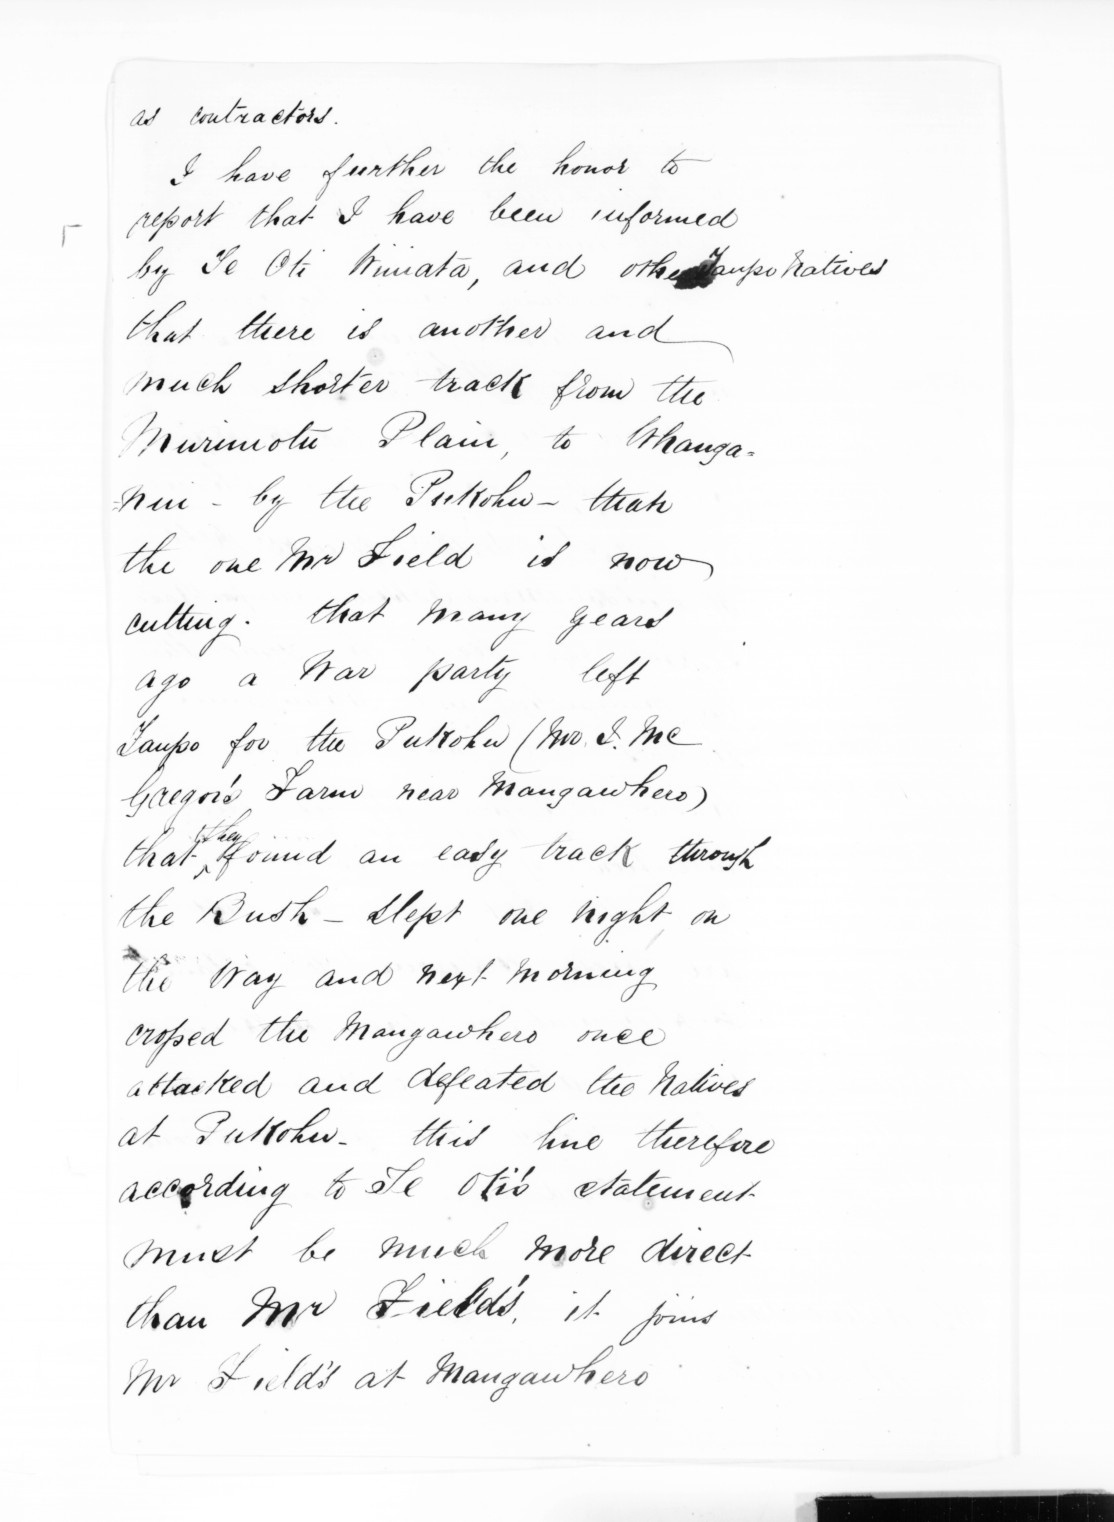 as contractors.
I have further the honor to
report that I have been informed
by Te Oti Wiriata, and other Taupo Natives
that there is another and
much shorter track from the
Murimotu Plain, to Whanga=
=nui - by the Pukohu - than
the one Mr Field is now
cutting. that many years
ago a War party left
Taupo for the Pukohu (Mr. J. Mc
Gregor's Farm near Mangawhero)
that they found an easy track through
the Bush - slept one night on
the Way and next morning
crossed the Mangawhero once
attacked and defeated the Natives
at Pukohu - this line therefore
according to Te Oti's statement
must be much more direct
than Mr Field's, it joins
Mr Field's at Mangawhero